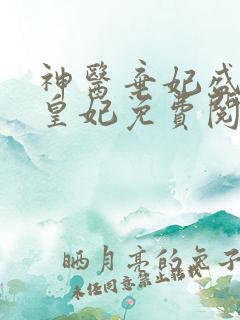 神醫棄妃盛
皇妃免費閱
晒月亮的兔子
未经同意禁止转载